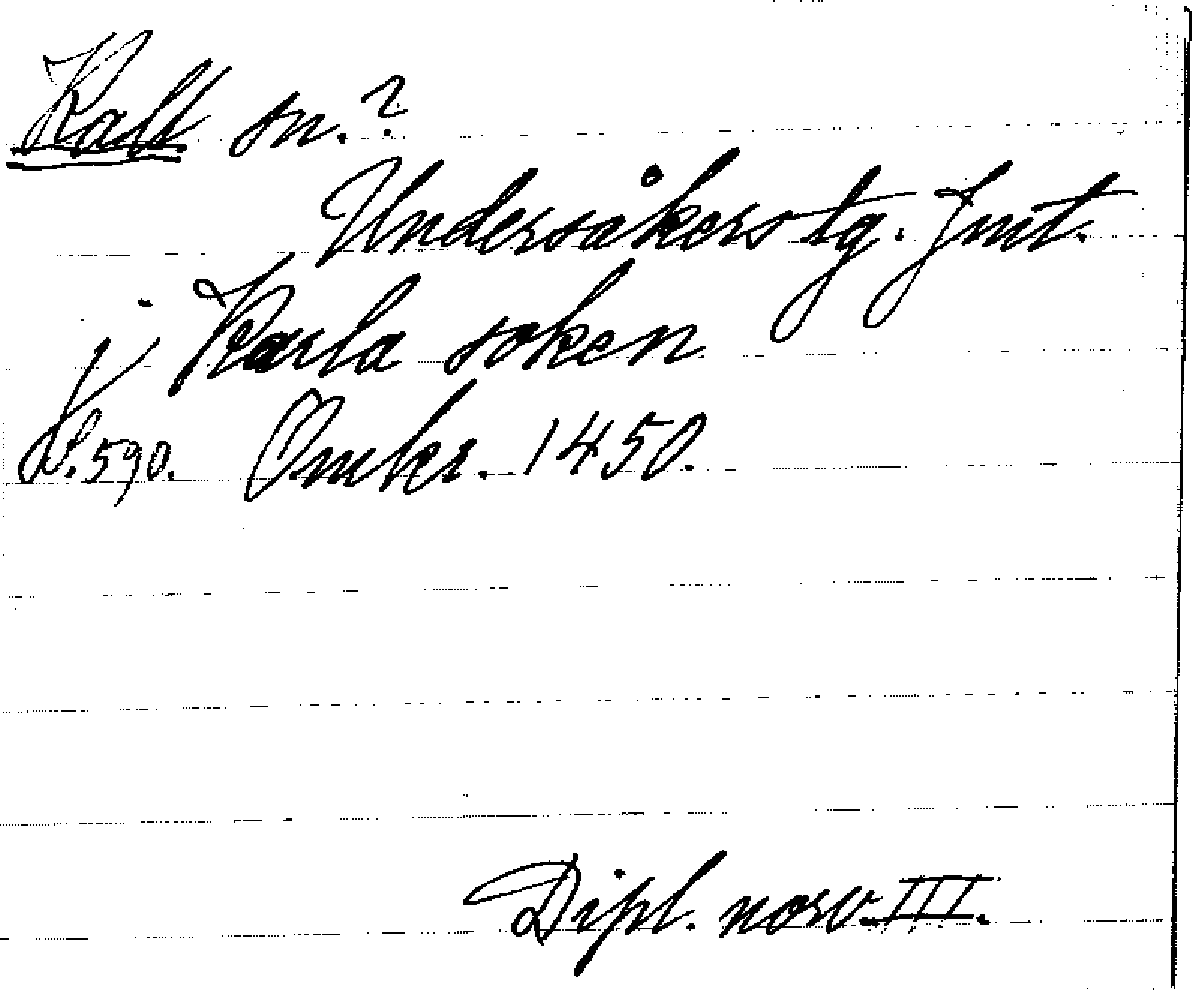 Kall sn.?
Undersåkers tg. Jmt.
j Karla soken
S. 590. Omkr. 1450.
Dipl. norv. III.